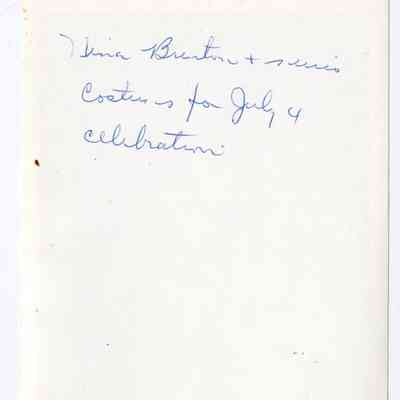 Nina Brenton +
Costumes for July 4
celebration